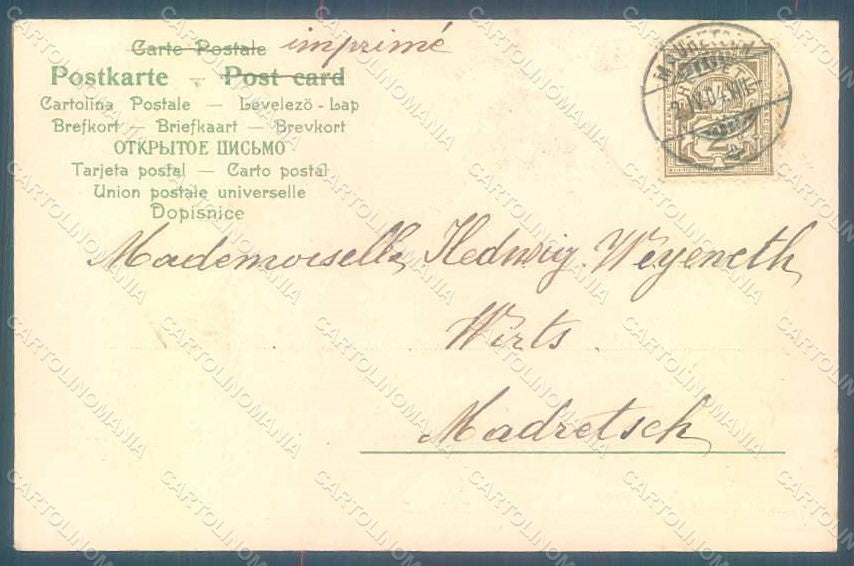 Carte Postale imprimé
Postkarte — Post card
Cartolina Postale — Levelezö-Lap
Brefkort — Briefkaart — Brevkort
ОТКРЫТОЕ ПИСЬМО
Tarjeta postal — Carto postal
Union postale universelle
Dopisnice
2
Mademoiselle Hedwig Weyeneth
Wirts.
Madretsch
CARTOLINOMANIA